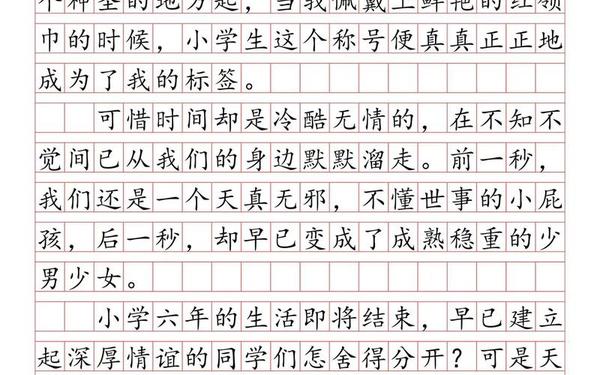 个神圣的地方起，当我佩戴上鲜艳的红领
巾的时候，小学生这个称号便真真正正地
成为了我的标签。
可惜时间却是冷酷无情的，在不知不
觉间已从我们的身边默默溜走。前一秒，
我们还是一个天真无邪，不懂世事的小屁
孩，后一秒，却早已变成了成熟稳重的少
男少女。
小学六年的生活即将结束，早已建立
起深厚情谊的同学们怎舍得分开？可是天